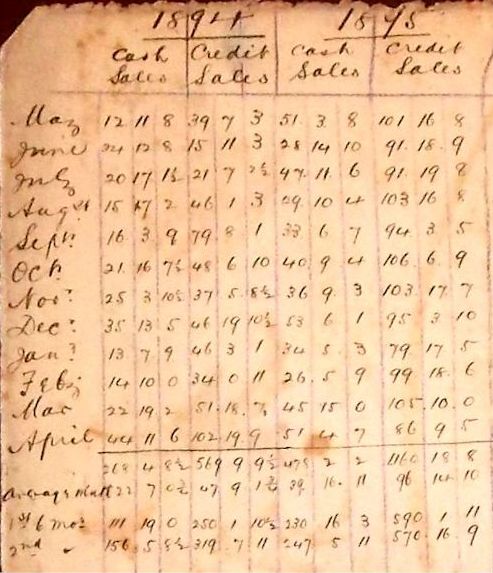 1894 1895
Cash Credit Cash Credit
Sales Sales Sales Sales
May 12 11 8 39 7 3 51 3 8 101 16 8
June 24 12 8 15 11 3 28 14 10 91 18 9
July 20 17 1½ 21 7 2½ 47 11 6 91 19 8
Augst 15 17 2 46 1 3 29 10 4 103 16 8
Sept. 16 3 9 79 8 1 33 6 7 94 3 5
Oct. 21 16 7½ 48 6 10 40 9 4 106 6 9
Novr 25 3 10½ 37 5 8½ 36 9 3 103 17 7
Decr 35 13 5 46 19 10½ 53 6 1 95 3 10
Jany 13 7 9 46 3 1 34 5 3 79 17 5
Feby 14 10 0 34 0 11 26 5 9 99 18 6
Mar 22 19 2 51 18 7½ 45 15 0 105 10 0
April 44 11 6 102 19 9 51 4 7 86 9 5
268 4 8½ 569 9 9½ 478 2 2 1160 18 8
22 7 47 9 1 39 16 11 96 14 10
1st 6 mos 111 19 0 250 1 10½ 230 16 3 590 1 11
2nd " 156 5 8½ 319 7 11 247 5 11 570 16 9